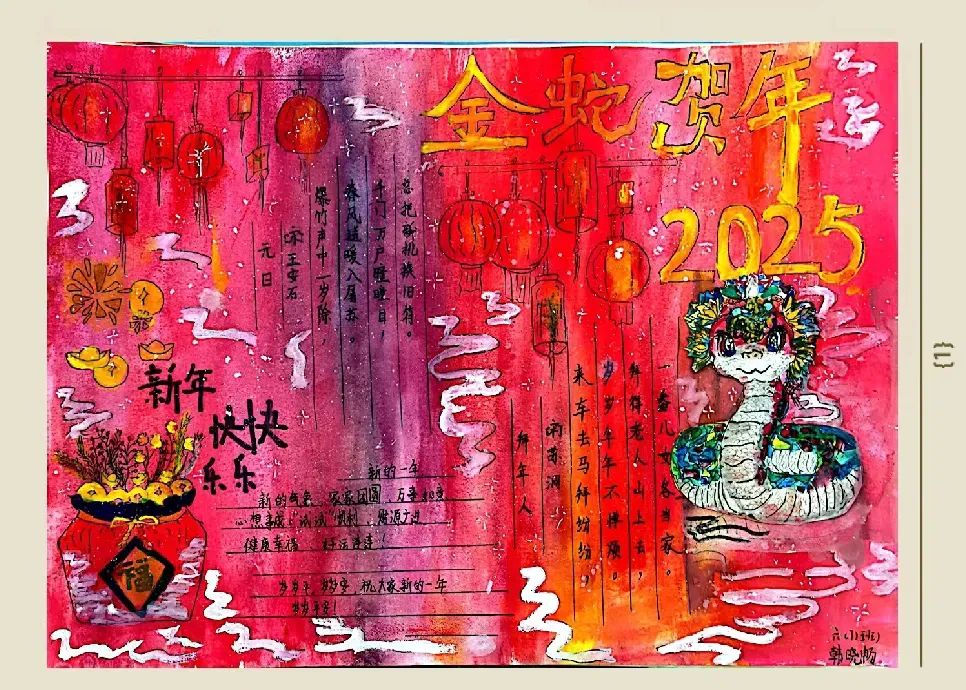 金蛇贺年
2025
元日
宋 王安石
爆竹声中一岁除，
春风送暖入屠苏。
千门万户瞳瞳日，
总把新桃换旧符。
拜年人
来车去马拜纷纷，
岁岁年年不惮烦。
拜得老人山上去，
一番儿女各当家。
新年
快快
乐乐
福
新的一年
新的气象 家家团圆 万事如意
心想事成！ 顺利 财源广进
健康幸福 好运连连！
岁岁 祝大家新的一年
岁岁平安！
六(1)班
韩晓畅